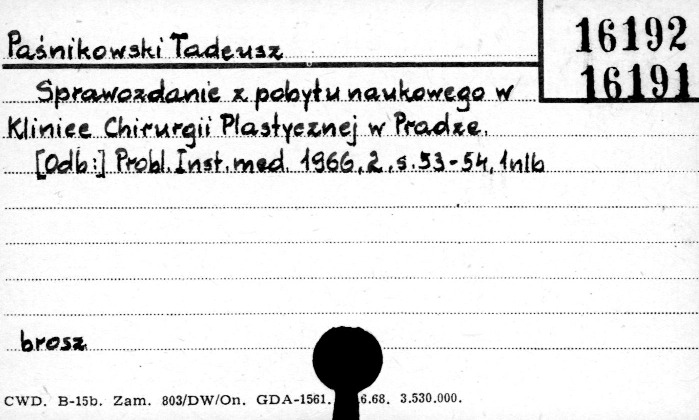 16192
Paśnikowski Tadeusz
16191
Sprawozdanie z pobytu naukowego w
Klinice Chirurgii Plastycznej w Pradze.
[Odb:] Probl. Inst. med. 1966, 2, s. 53-54, 1nlb
brosz
CWD. B-15b. Zam. 803/DW/On. GDA-1561. 6.68. 3.530.000.